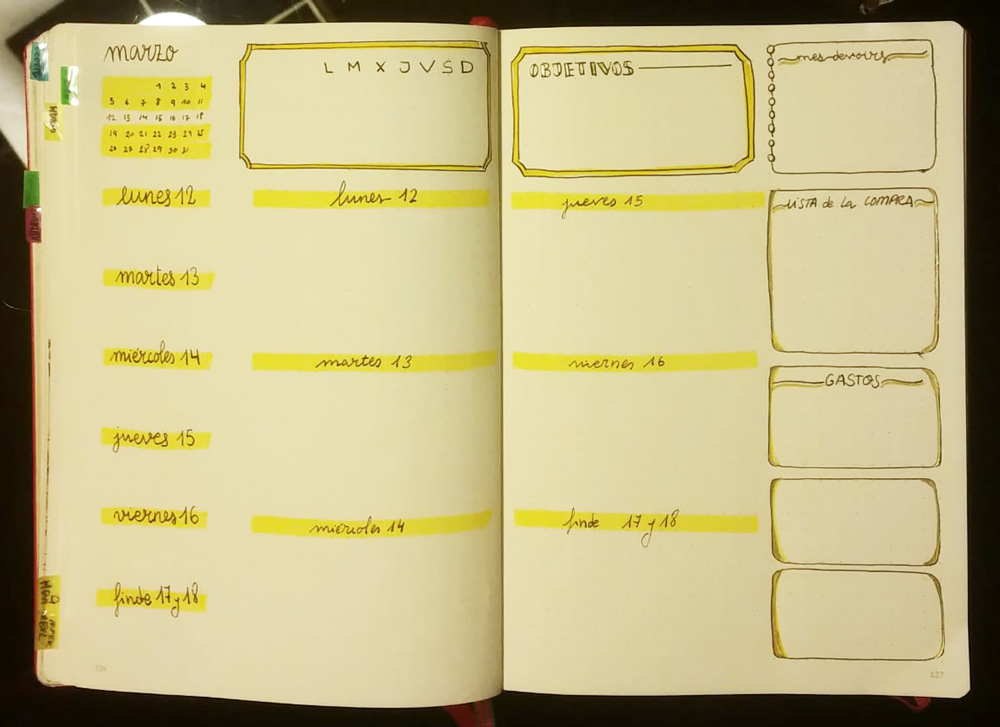 marzo
1 2 3 4
5 6 7 8 9 10 11
12 13 14 15 16 17 18
19 20 21 22 23 24 25
26 27 28 29 30 31
lunes 12
martes 13
miércoles 14
jueves 15
viernes 16
finde 17 y 18
L M X J V S D
lunes 12
martes 13
miércoles 14
126
OBJETIVOS
jueves 15
viernes 16
finde 17 y 18
mes devoirs
LISTA de La COMPRA
GASTOS
127